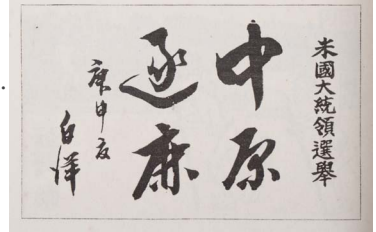 米國大統領選擧
中原
逐鹿
庚申夜
白洋